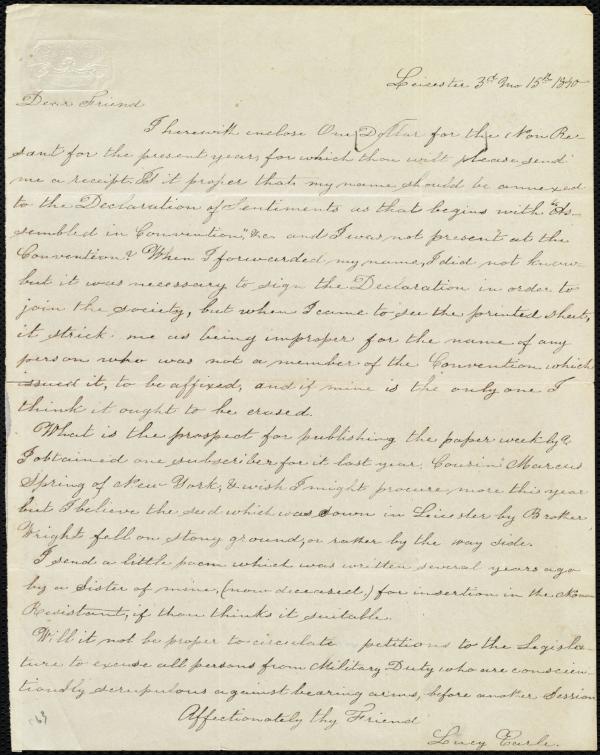 Leicester 3d. Mo 15th 1840
Dear Friend
I herewith enclose One Dollar for the Non Re-
sant for the present year, for which thou wilt please send
me a receipt. Is it proper that my name should be annexed
to the Declaration of Sentiments as that begins with "As-
sembled in Convention," &c. and I was not present at the
Convention? When I forwarded my name, I did not know
but it was necessary to sign the Declaration in order to
join the society, but when I came to see the printed sheet,
it strick me as being improper for the name of any
person who was not a member of the Convention which
issued it, to be affixed; and if mine is the only one I
think it ought to be erased.
What is the prospect for publishing the paper weekly?
I obtained one subscriber for it last year, Cousin Marcus
Spring of New York, & wish I might procure more this year
but I believe the seed which was sown in Leicester by Brother
Wright fell on stony ground, or rather by the way side.
I send a little poem which was written several years ago
by a Sister of mine, (now deceased,) for insertion in the Non
Resistant, if thou thinks it suitable.
Will it not be proper to circulate petitions to the Legisla-
ture to excuse all persons from Military Duty who are conscien-
tiously scrupulous against bearing arms, before another Session
Affectionately thy Friend
Lucy Earle.